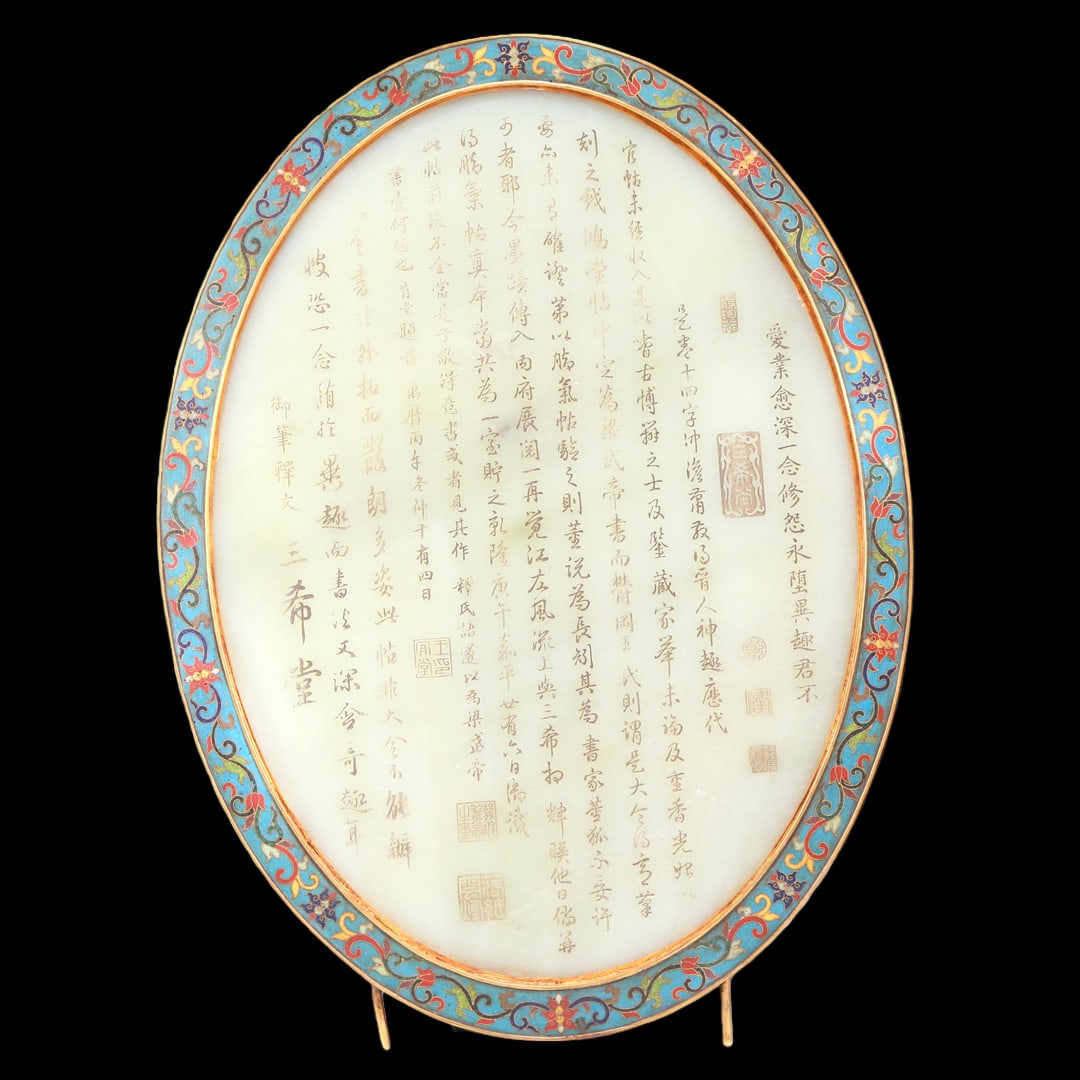 愛業愈深一念修怨永墮異趣君不
三希堂
乾
隆
是卷十四字沖澹蕭散得晉人神趣應代
官帖未經收入是以嗜古博辨之士及鑒藏家罕未論及董香光始以
刻之戲鴻堂帖中定為梁武帝書而鬱岡王氏則謂是大令得意筆
要亦未有確證第以腦氣帖驗之則董說為長剏其為書家董狐不妄許
可者耶今墨蹟傳入內府展閱一再覺江左風流上與三希相輝映他日倘並
得腦氣帖真本當共為一室貯之乾隆庚午嘉平廿有六日御識
此帖前後不全當是子敬得意書或者見其作釋氏語遂以為梁武帝
書何也肯堂題 萬曆丙午冬仲十有四日
令書法外拓而散朗多姿此帖非大令不能辦
彼恐一念隨於異趣而書法又深含奇趣耳
御筆釋文 三希堂